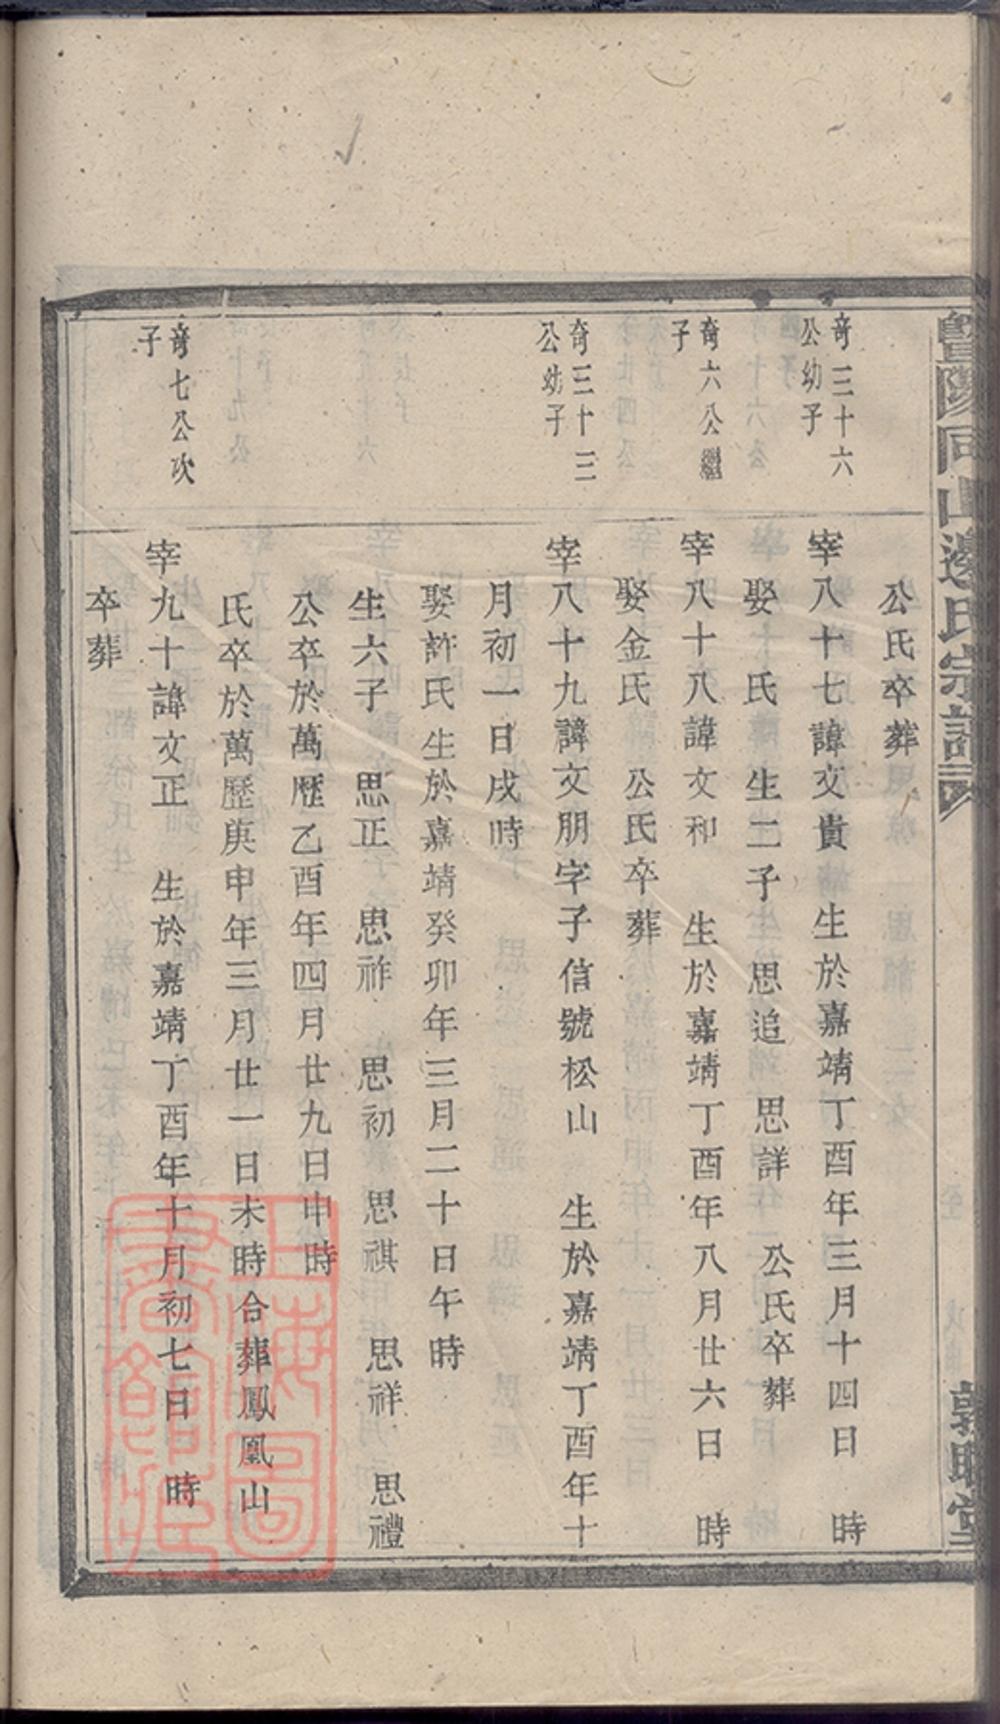 暨陽同山邊氏宗譜
敦睦堂
公氏卒葬
奇三十六
公幼子
宰八十七諱文貴 生於嘉靖丁酉年三月十四日 時
娶 氏 生二子 思追 思詳 公氏卒葬
奇六公繼
子
宰八十八諱文和 生於嘉靖丁酉年八月廿六日 時
娶金氏 公氏卒葬
奇三十三
公幼子
宰八十九諱文朋字子信號松山 生於嘉靖丁酉年十
月初一日戌時
娶許氏 生於嘉靖癸卯年三月二十日午時
生六子 思正 思祚 思初 思祺 思祥 思禮
公卒於萬歷乙酉年四月廿九日申時
氏卒於萬歷庚申年三月廿一日未時合葬鳳凰山
奇七公次
子
宰九十諱文正 生於嘉靖丁酉年十月初七日 時
卒葬
上海圖書館藏